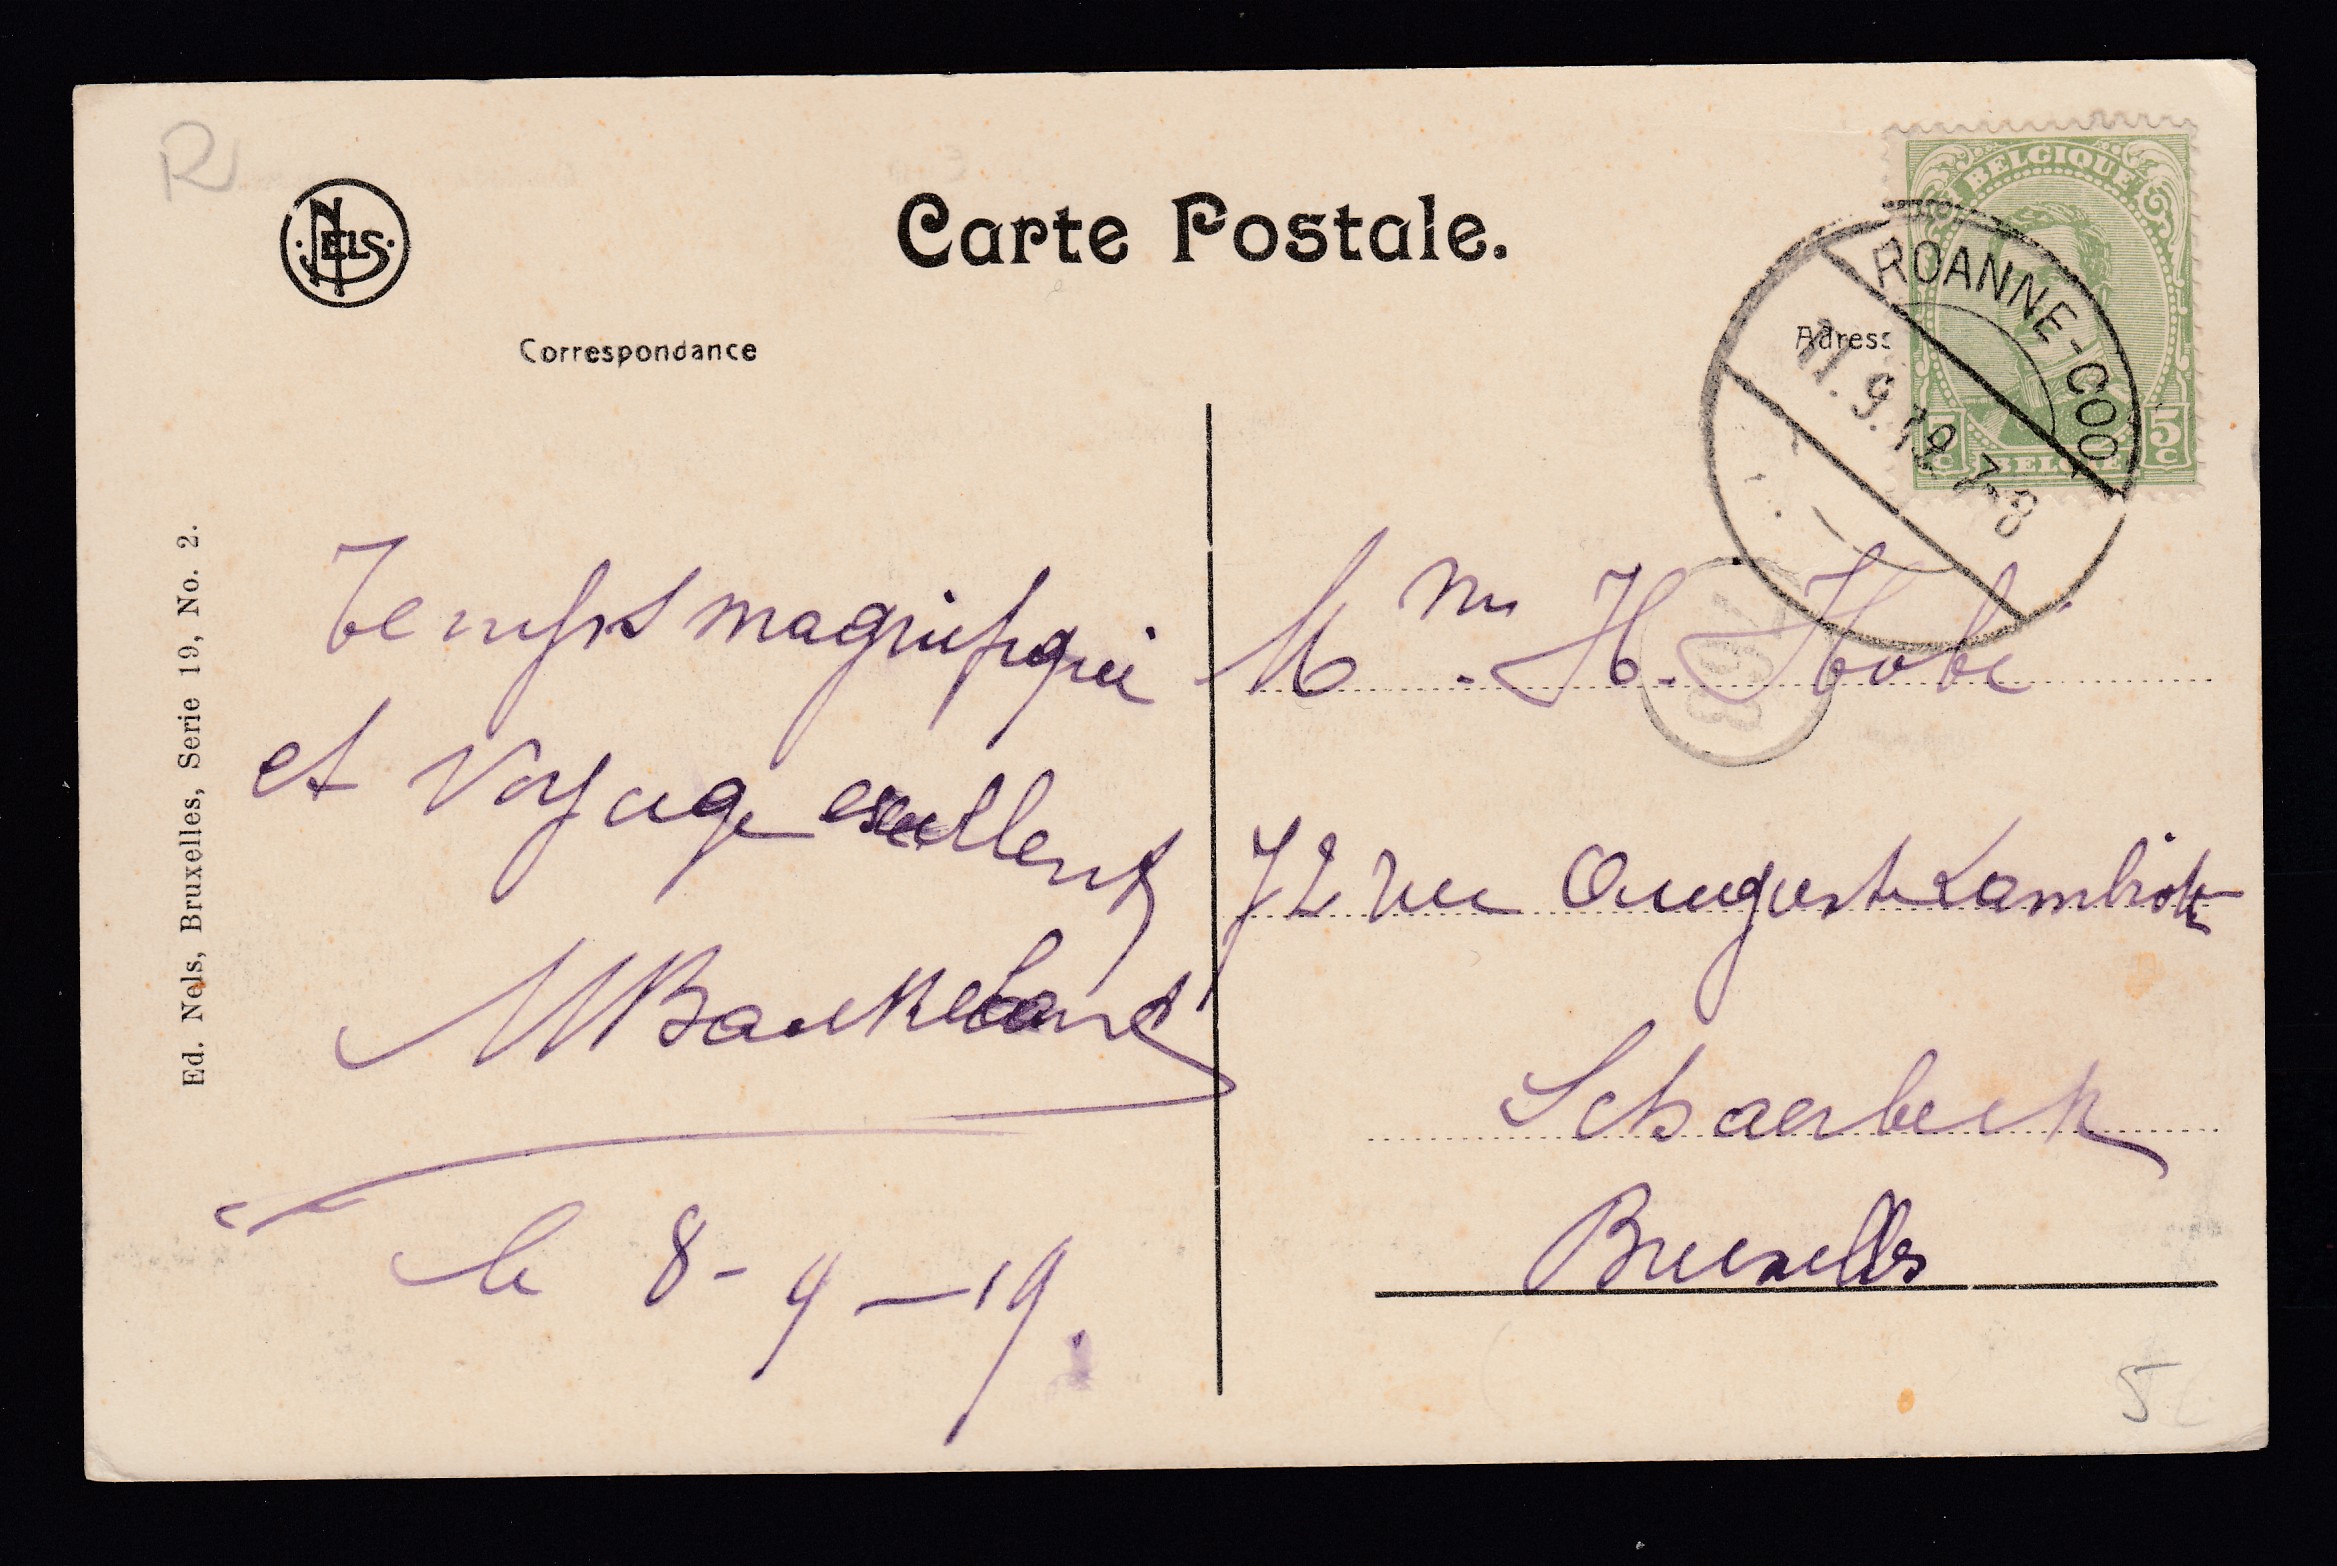 R
NELS
Carte Postale.
Correspondance
Adress
BELGIQUE
5 c
BELGIË
5 c
ROANNE-COO
11.9.19 7-8
Temps magnifique
et voyage excellent
le 8-9-19.
Ed. Nels, Bruxelles, Serie 19, No. 2.
Mme. H.
72 rue Auguste Lambiotte
Schaerbeek
Bruxelles
5